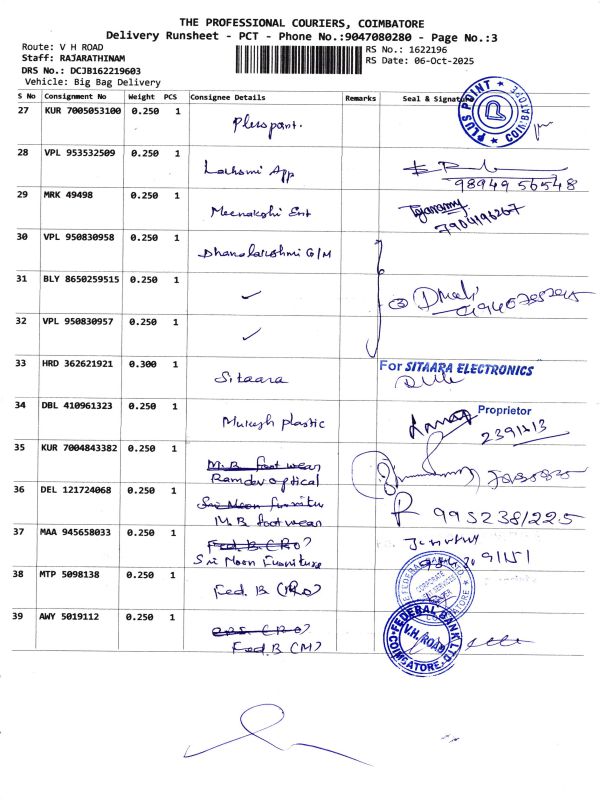 THE PROFESSIONAL COURIERS, COIMBATORE
Delivery Runsheet - PCT - Phone No.:9047080280 - Page No.:3
Route: V H ROAD
RS No.: 1622196
Staff: RAJARATHINAM
RS Date: 06-Oct-2025
DRS No.: DCJB162219603
Vehicle: Big Bag Delivery
S No Consignment No Weight PCS Consignee Details Remarks Seal & Signature
27 KUR 7005053100 0.250 1 Pluspoint.
PLUS POINT COIMBATORE
28 VPL 953532509 0.250 1 Lakshmi App
98949 56548
29 MRK 49498 0.250 1 Meenakshi Ent
7904196267
30 VPL 950830958 0.250 1 Dhanalakshmi G/M
31 BLY 8650259515 0.250 1 ✓
32 VPL 950830957 0.250 1 ✓
33 HRD 362621921 0.300 1 Sitaara
For SITAARA ELECTRONICS
Proprietor
34 DBL 410961323 0.250 1 Mukesh plastic
35 KUR 7004843382 0.250 1 M.B foot wear
Ramdev optical
36 DEL 121724068 0.250 1 Sri Moon Furnitur
M.B foot wear
995238/225
37 MAA 945658033 0.250 1 Fed. B (RO)
Sri Moon Furniture
38 MTP 5098138 0.250 1 Fed. B (RO)
39 AWY 5019112 0.250 1
Fed.B (M)
FEDERAL BANK LTD.
V.H. ROAD
COIMBATORE